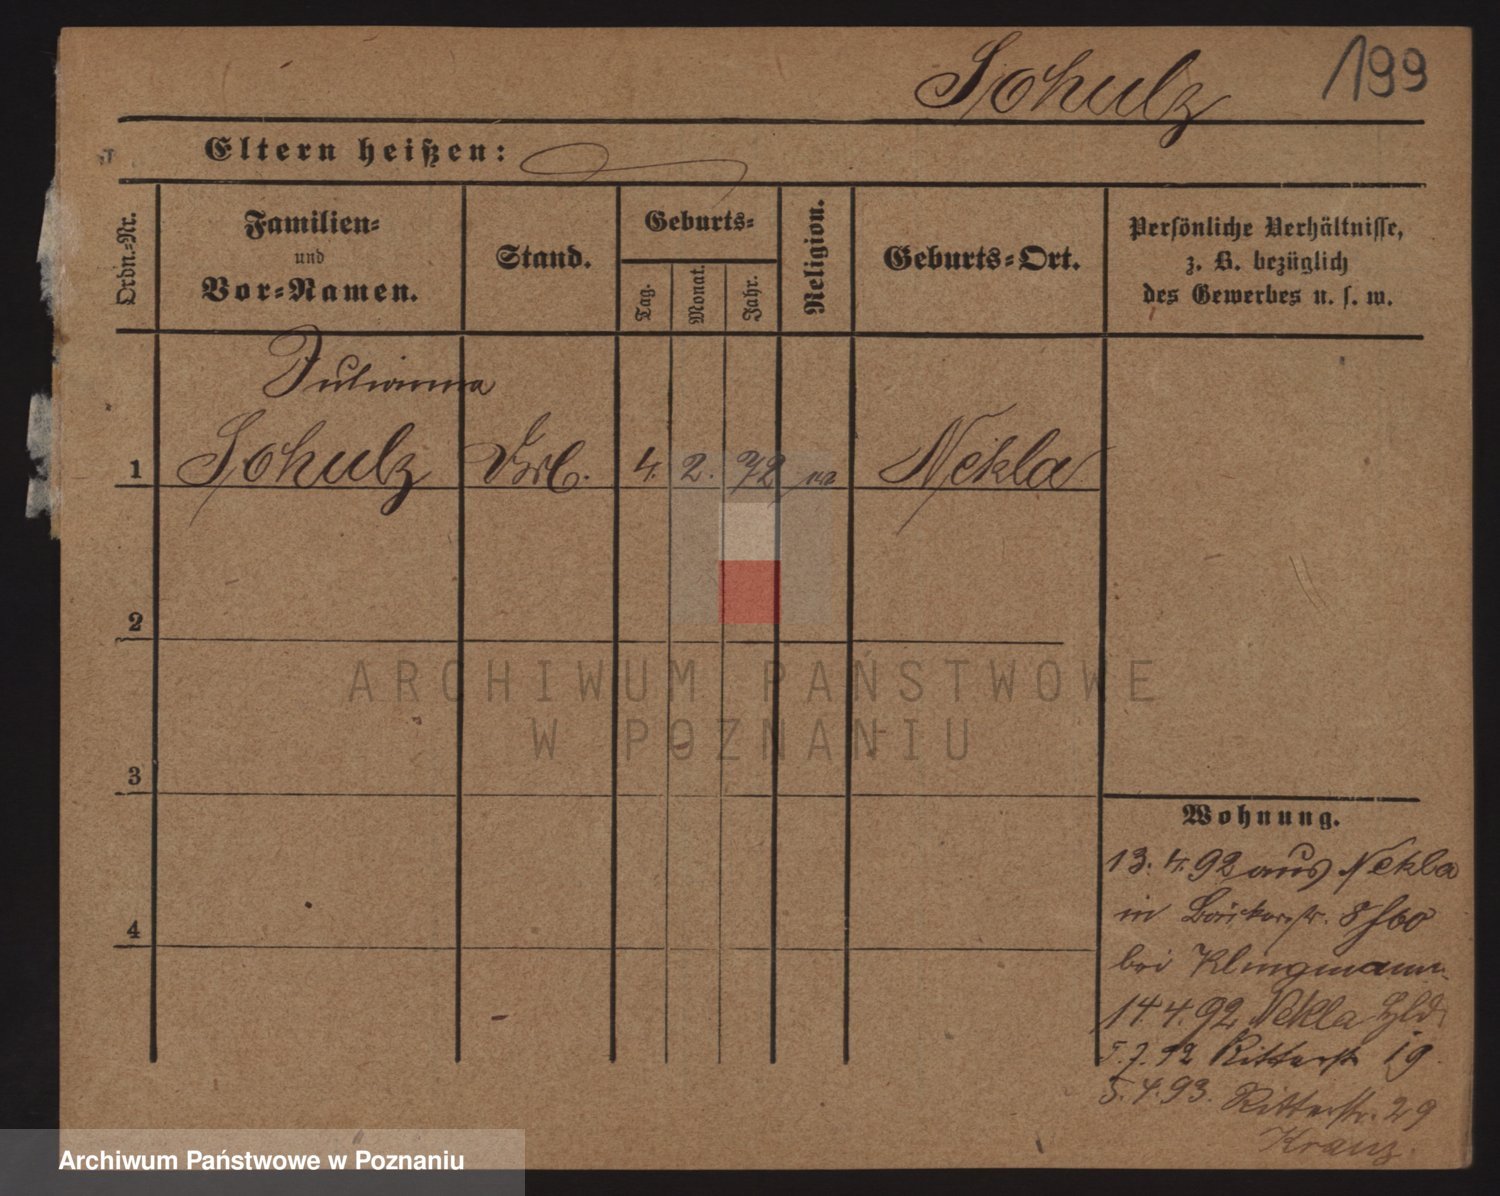 Schulz 199
Eltern heißen:
Ordn.-Nr.
Familien-
und
Vor-Namen.
Stand.
Geburts-
Tag.
Monat.
Jahr.
Religion.
Geburts-Ort.
Persönliche Verhältnisse,
z. B. bezüglich
des Gewerbes u. s. w.
Julianna
1 Schulz 4. 2. 72 Nekla
2
ARCHIWUM PAŃSTWOWE
W POZNANIU
3
4
Wohnung.
13. 4. 92 aus Nekla
in Bäckerstr.
bei Klingmann
14. 4. 92 Nekla
5. 7. 92 Ritterstr 19.
5. 4. 93. Ritterstr. 29
Kranz.
Archiwum Państwowe w Poznaniu